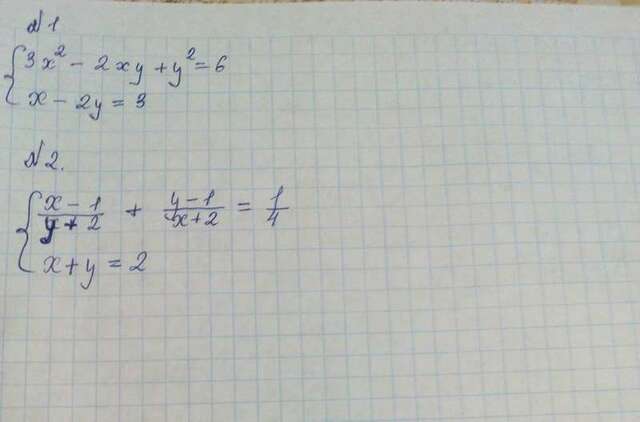 №1
3x² - 2xy + y² = 6
x - 2y = 3
№2.
(x - 1)/(y + 2) + (y - 1)/(x + 2) = 1/4
x + y = 2